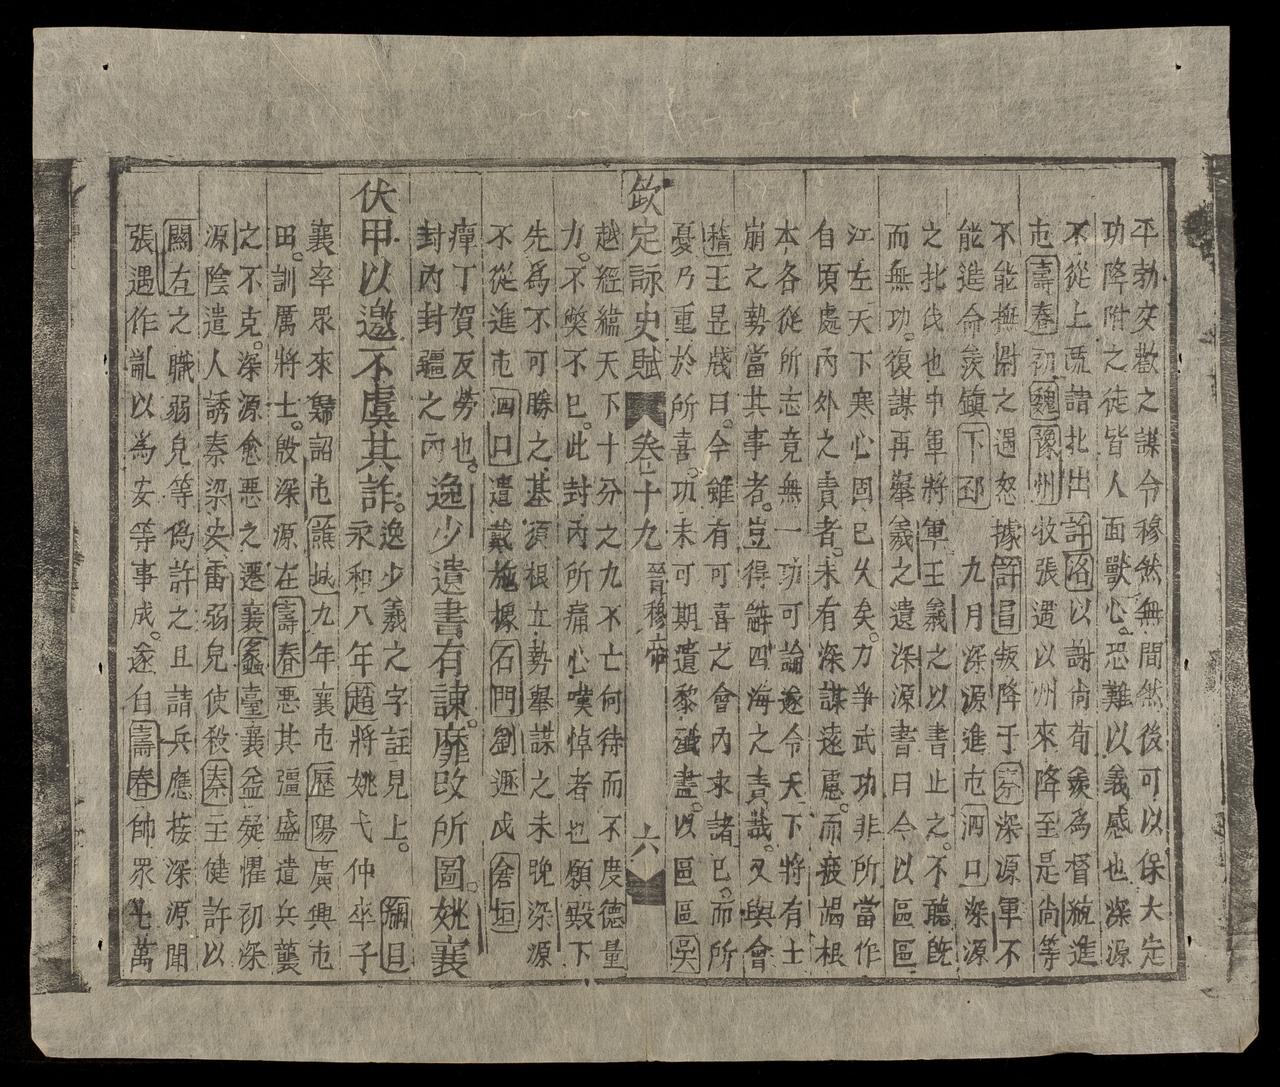 平勃交歡之謀令穆然無間然後可以保大定
功降附之徒皆人面獸心恐難以義感也深源
不從上疏請北出許洛以謝尚荀羨為督統進
屯壽春初魏豫州牧張遇以州來降至是尚等
不能撫尉之遇怒據許昌叛降于苻深源軍不
能進命羨鎮下邳九月深源進屯泗口深源
之北伐也中軍將軍王羲之以書止之不聽既
而無功復謀再舉羲之遺深源書曰今以區區
江左天下寒心固已久矣力爭武功非所當作
自頃處內外之責者未有深謀遠慮而疲竭根
本各從所志竟無一功可論遂令天下將有土
崩之勢當其事者豈得辭四海之責哉又與會
稽王昱牋曰今雖有可喜之會內求諸已而所
憂乃重於所喜功未可期遺黎殲盡以區區吳
欽定詠史賦 卷十九 晉穆帝 六
越經緯天下十分之九不亡何待而不度德量
力不獘不已此封內所痛心嘆悼者也願殿下
先為不可勝之基須根立勢舉謀之未晚深源
不從進屯泗口遣戴施據石門劉遯戍倉垣
瘴丁賀友勞也
封內封疆之內
逸少遺書有諫靡改所圖姚襄
伏甲以邀不虞其詐
逸少羲之字註見上綱目
永和八年趙將姚弋仲卒子
襄率眾來歸詔屯譙城九年襄屯歷陽廣興屯
田訓厲將士殷深源在壽春惡其彊盛遣兵襲
之不克深源愈惡之遷襄蠡臺襄益疑懼初深
源陰遣人誘秦梁安雷弱兒使殺秦王健許以
關右之職弱兒等偽許之且請兵應接深源聞
張遇作亂以為安等事成遂自壽春帥眾七萬